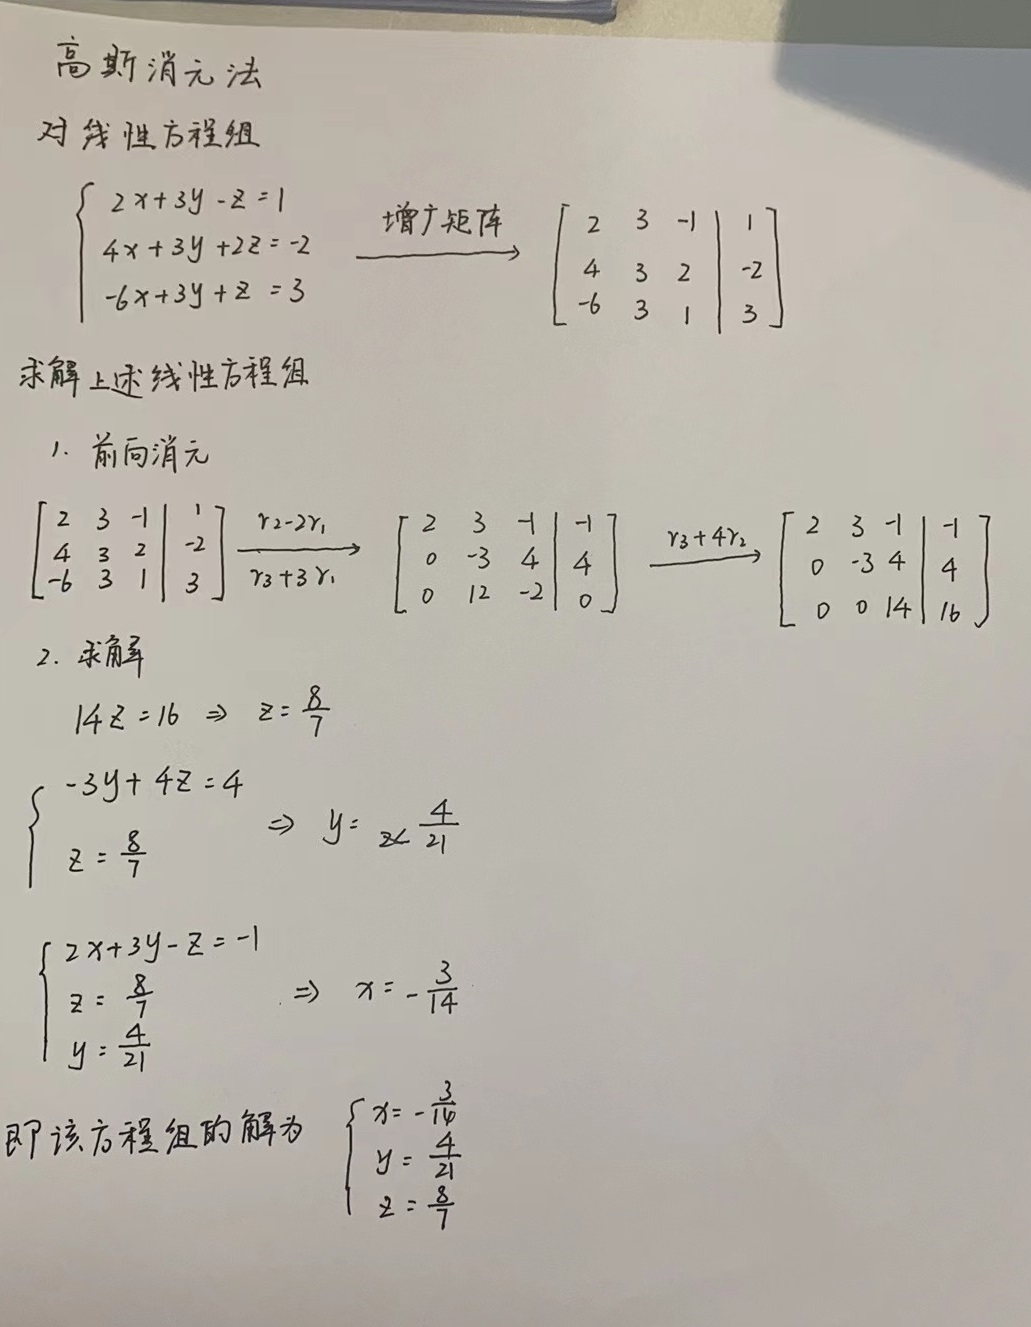 高斯消元法
对线性方程组
{ 2x+3y-z=1
4x+3y+2z=-2
-6x+3y+z=3
增广矩阵 →
[ 2 3 -1 | 1
4 3 2 | -2
-6 3 1 | 3 ]
求解上述线性方程组
1. 前向消元
[ 2 3 -1 | 1
4 3 2 | -2
-6 3 1 | 3 ]
r2-2r1
r3+3r1 →
[ 2 3 -1 | -1
0 -3 4 | 4
0 12 -2 | 0 ]
r3+4r2 →
[ 2 3 -1 | -1
0 -3 4 | 4
0 0 14 | 16 ]
2. 求解
14z=16 ⇒ z=8/7
{ -3y+4z=4
z=8/7
⇒ y= 4/21
{ 2x+3y-z=-1
z=8/7
y=4/21
⇒ x=-3/14
即该方程组的解为
{ x=-3/14
y=4/21
z=8/7